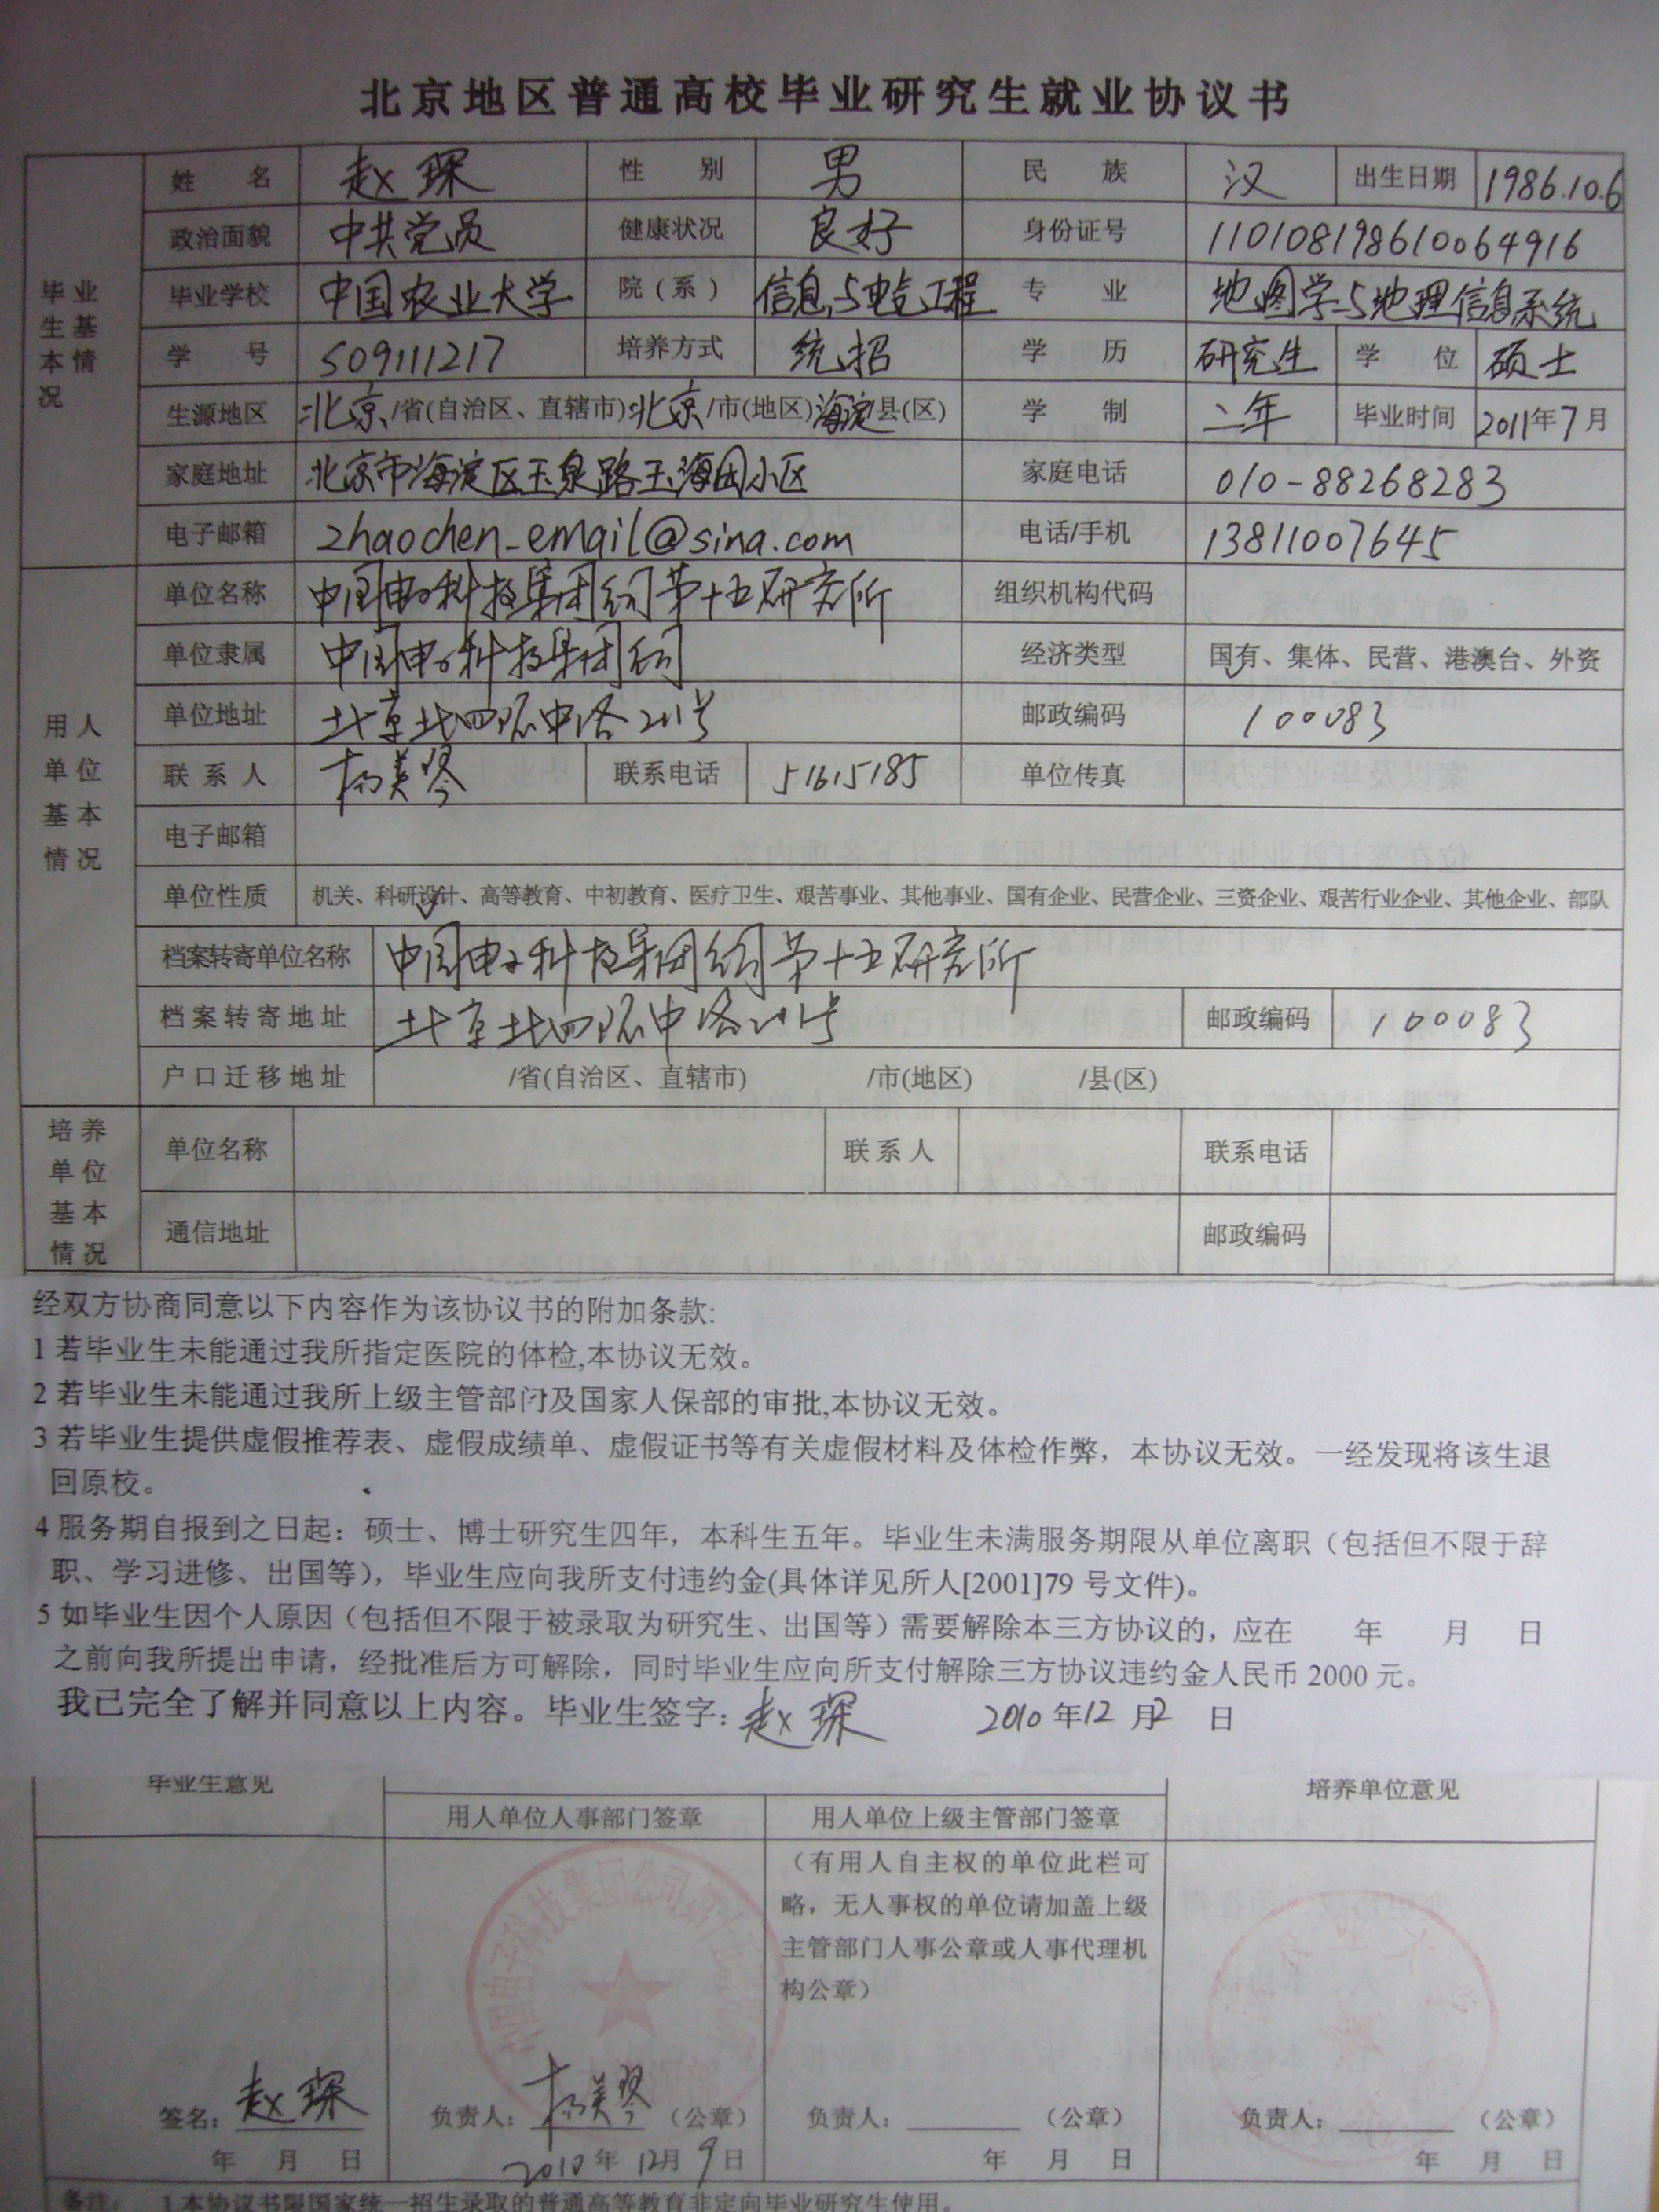 北京地区普通高校毕业研究生就业协议书
毕业生基本情况
姓 名 赵琛 性 别 男 民 族 汉 出生日期 1986.10.6
政治面貌 中共党员 健康状况 良好 身份证号 110108198610064916
毕业学校 中国农业大学 院(系) 信息与电气工程 专 业 地图学与地理信息系统
学 号 S09111217 培养方式 统招 学 历 研究生 学 位 硕士
生源地区 北京/省(自治区、直辖市)北京/市(地区)海淀县(区) 学 制 二年 毕业时间 2011年7月
家庭地址 北京市海淀区玉泉路玉海园小区 家庭电话 010-88268283
电子邮箱 zhaochen_email@sina.com 电话/手机 13811007645
用人单位基本情况
单位名称 中国电子科技集团公司第十五研究所 组织机构代码
单位隶属 中国电子科技集团公司 经济类型 国有、集体、民营、港澳台、外资
单位地址 北京北四环中路211号 邮政编码 100083
联系人 杨美琴 联系电话 51615185 单位传真
电子邮箱
单位性质 机关、科研设计、高等教育、中初教育、医疗卫生、艰苦事业、其他事业、国有企业、民营企业、三资企业、艰苦行业企业、其他企业、部队
档案转寄单位名称 中国电子科技集团公司第十五研究所
档案转寄地址 北京北四环中路211号 邮政编码 100083
户口迁移地址 /省(自治区、直辖市) /市(地区) /县(区)
培养单位基本情况
单位名称 联系人 联系电话
通信地址 邮政编码
经双方协商同意以下内容作为该协议书的附加条款:
1 若毕业生未能通过我所指定医院的体检,本协议无效。
2 若毕业生未能通过我所上级主管部门及国家人保部的审批,本协议无效。
3 若毕业生提供虚假推荐表、虚假成绩单、虚假证书等有关虚假材料及体检作弊，本协议无效。一经发现将该生退
回原校。
4 服务期自报到之日起：硕士、博士研究生四年，本科生五年。毕业生未满服务期限从单位离职（包括但不限于辞
职、学习进修、出国等），毕业生应向我所支付违约金(具体详见所人[2001]79 号文件)。
5 如毕业生因个人原因（包括但不限于被录取为研究生、出国等）需要解除本三方协议的，应在 年 月 日
之前向我所提出申请，经批准后方可解除，同时毕业生应向所支付解除三方协议违约金人民币 2000 元。
我已完全了解并同意以上内容。毕业生签字: 赵琛 2010 年 12 月 2 日
毕业生意见 培养单位意见
用人单位人事部门签章 用人单位上级主管部门签章
（有用人自主权的单位此栏可
略，无人事权的单位请加盖上级
主管部门人事公章或人事代理机
构公章）
中国电子科技集团公司第十五研究所
签名: 赵琛 负责人: 杨美琴 （公章） 负责人: （公章） 负责人: （公章）
年 月 日 2010年12月9日 年 月 日 年 月 日
备注: 1.本协议书限国家统一招生录取的普通高等教育非定向毕业研究生使用。